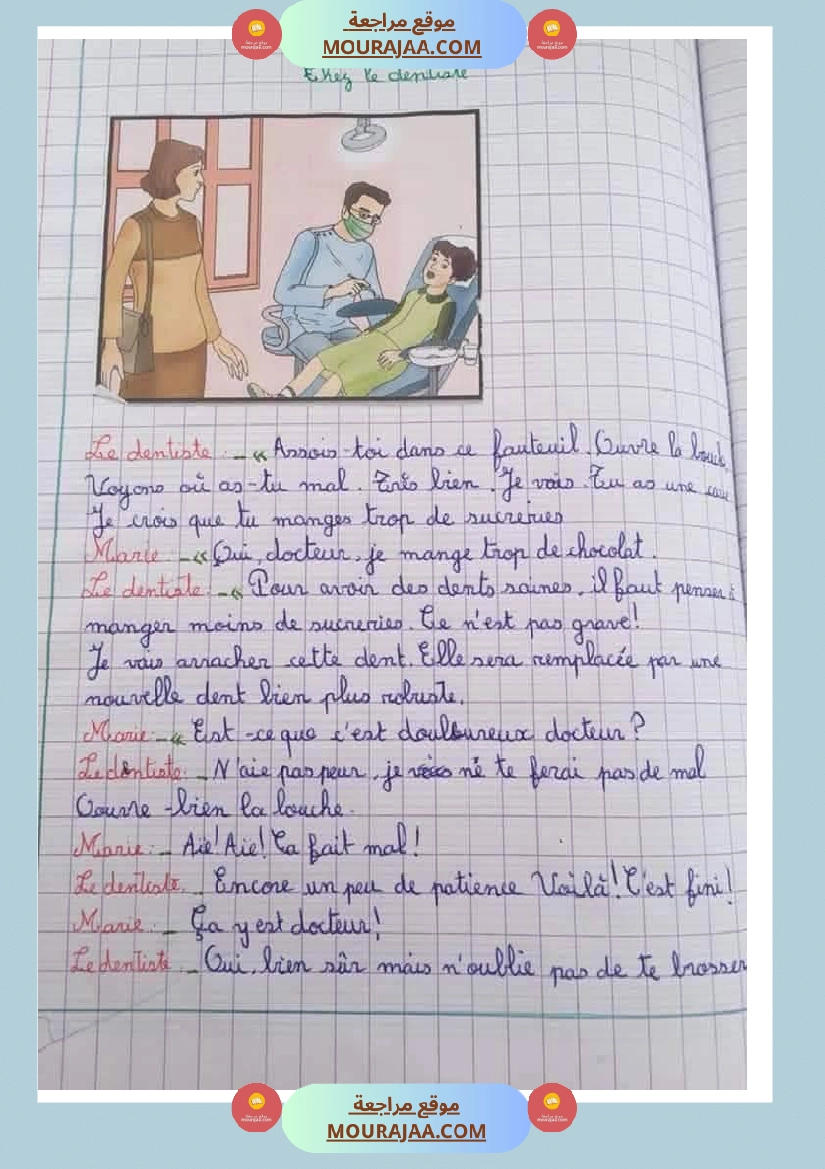 موقع مراجعة
MOURAJAA.COM
Chez le dentiste
Le dentiste : _ « Assois-toi dans ce fauteuil. Ouvre la
Voyons où as-tu mal. Très bien. Je vois. Tu as une
Je crois que tu manges trop de sucreries
Marie : _ « Oui, docteur, je mange trop de chocolat.
Le dentiste : _ « Pour avoir des dents saines, il faut penser à
manger moins de sucreries. Ce n'est pas grave!
Je vais arracher cette dent. Elle sera remplacée par une
nouvelle dent bien plus robuste.
Marie : _ « Est-ce que c'est douloureux docteur?
Le dentiste : _ N'aie pas peur, je ne te ferai pas de mal
Ouvre - bien la bouche.
Marie : _ Aïe! Aïe! Ça fait mal!
Le dentiste : _ Encore un peu de patience Voilà! C'est fini!
Marie : _ Ça y est docteur!
Le dentiste _ Oui, bien sûr mais n'oublie pas de te brosser
موقع مراجعة
MOURAJAA.COM